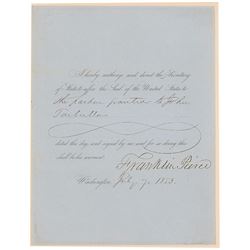 I hereby authorize and direct the Secretary
of State to affix the Seal of the United States to
the pardon granted to John
Tarbull
dated this day, and signed by me and for so doing this
shall be his warrant.
Franklin Pierce
Washington, July 7, 1853.